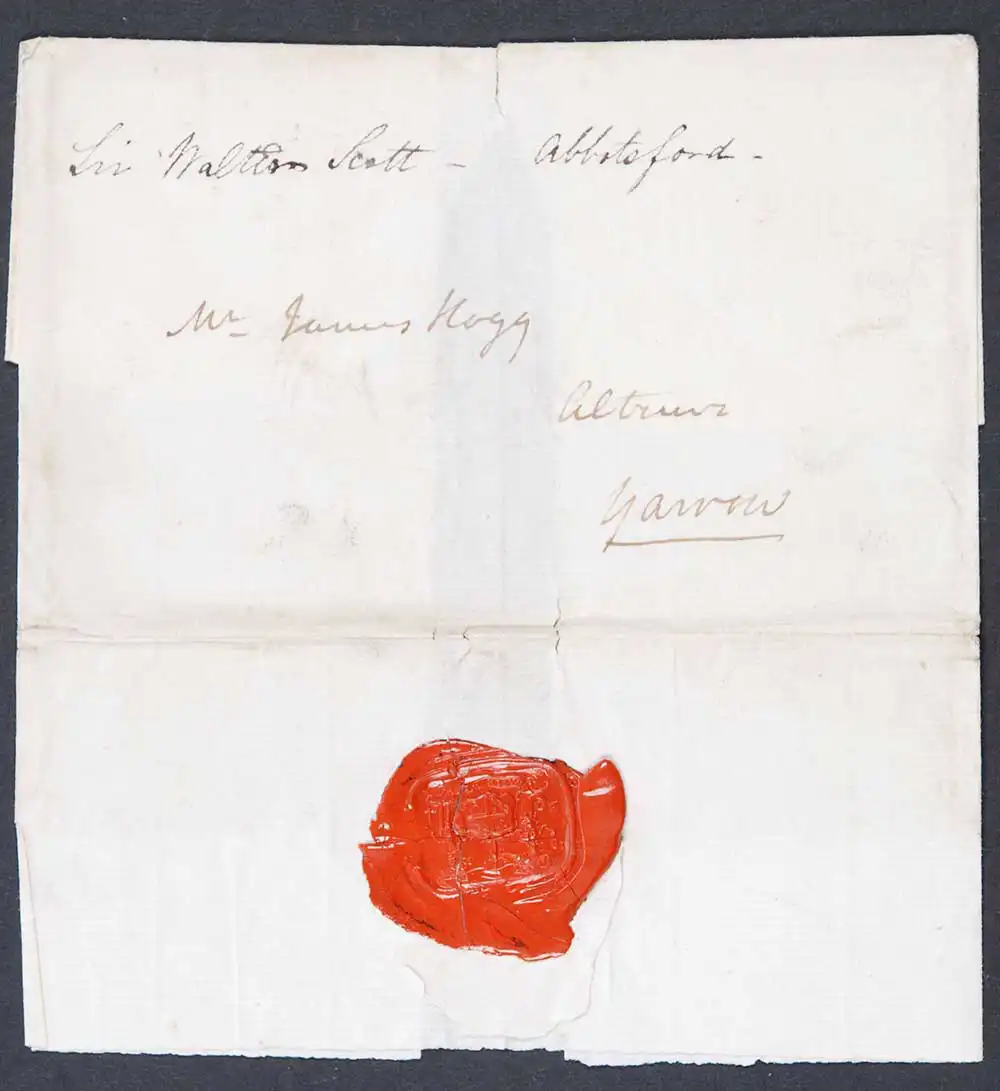 Sir Walter Scott - Abbotsford -
Mr James Hogg
Altrive
Yarrow